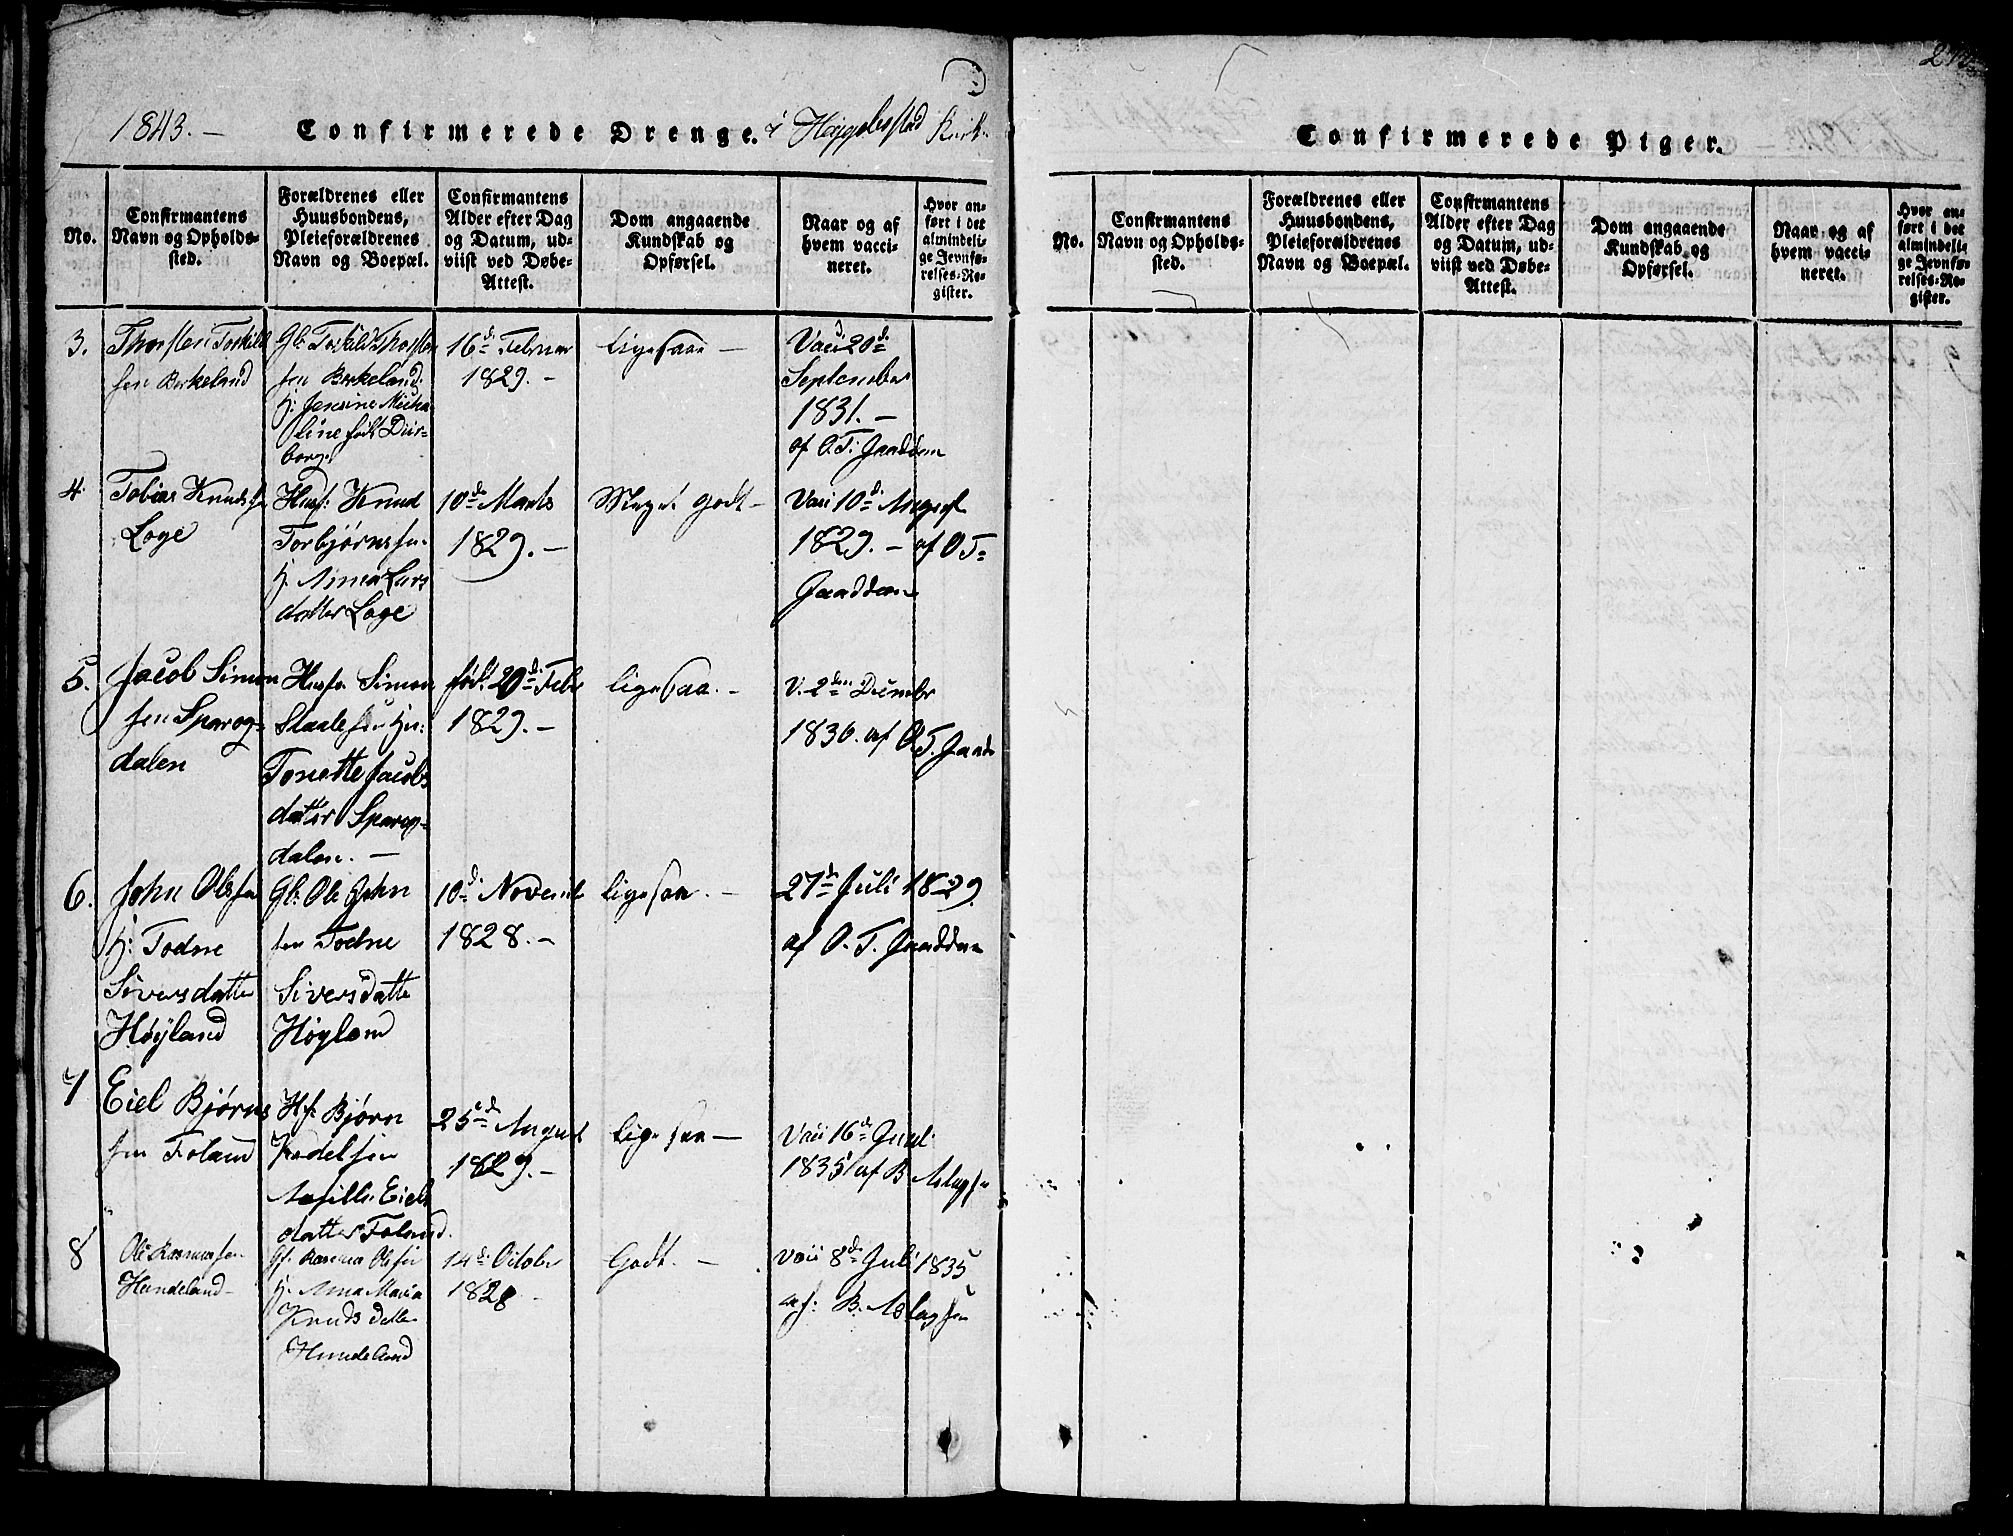 1843. —
Confirmerede Drenge. i Hæggebestad Kirk.
No.
Confirmantens
Navn og Opholds-
sted.
Forældrenes eller
Huusbondens,
Pleieforældrenes
Navn og Boepæl.
Confirmantens
Alder efter Dag
og Datum, ud-
viist ved Døbe-
Attest.
Dom angaaende
Kundskab og
Opførsel.
Naar og af
hvem vacci-
neret.
Hvor an-
ført i det
almindeli-
ge Jevnfø-
relses-Re-
gister.
3.
Thorsten Toskild
sen Birkeland
Gb: Toskild Thorsten
sen Birkeland
H: Jensine Micha
line født Duir-
borg.
16d. Februar
1829. —
ligesaa —
Vaci 20d.
September
1831. —
af O. T. Jaaddan
4.
Tobias Knuds
Loge
Husf: Knud
Torbjørnsen
H. Anna Lars
datter Loge
10d. Marts
1829. —
Meget godt —
Vaci 10d. August
1829. — af O T=
Jaaddan
5.
Jacob Simon
sen Sparog-
dalen
Husf. Simon
Staalesen
Tonette Jacobs
datter Sparog-
dalen. —
fød. 20d. Febr
1829. —
ligesaa. —
V. 2den Decembr
1830. af O. T. Jaad
6.
John Olesen
H: Todne
Siversdatter
Høyland
Gb: Ole John
sen Todne
Siversdatte
Høyland
10d. Novemb
1828. —
ligesaa. —
27d. Juli 1829.
af O. T. Jaaddan
7
Eiel Bjørns
sen Foland
Hf. Bjørn
Kadelsen
Asille Eiels
datter Foland.
25d. August
1829. —
ligesaa —
Vaci 16d. Juni
1835 af B. Aslagsen
8
Ole Rasmussen
Hundeland —
Gf. Rasmus Olesen
H. Anna Maria
Knuds datter
Hundeland
14d. October
1828 —
Godt. —
Vaci 8d. Juli 1835
af: B. Aslagsen
Confirmerede Piger.
No.
Confirmantens
Navn og Opholds-
sted.
Forældrenes eller
Huusbondens,
Pleieforældrenes
Navn og Boepæl.
Confirmantens
Alder efter Dag
og Datum, ud-
viist ved Døbe-
Attest.
Dom angaaende
Kundskab og
Opførsel.
Naar og af
hvem vacci-
neret.
Hvor an-
ført i det
almindelig
ge Jevnfø-
relses-Re-
gister.